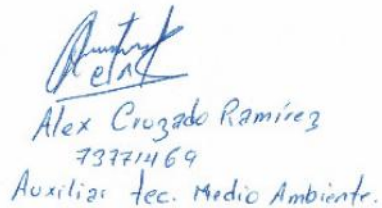 Alex Cruzado Ramírez
73771469
Auxiliar tec. Medio Ambiente.